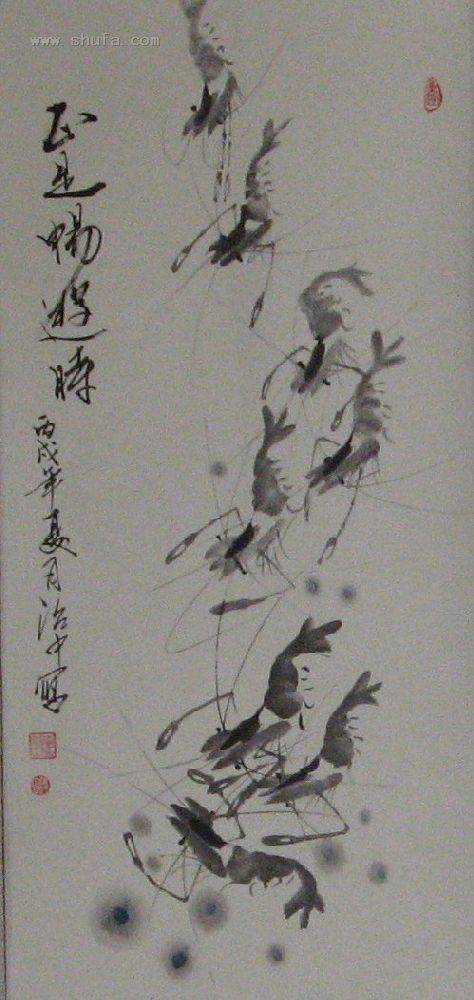 www.shufa.com
正是畅遊時
丙戌年夏月治中寫